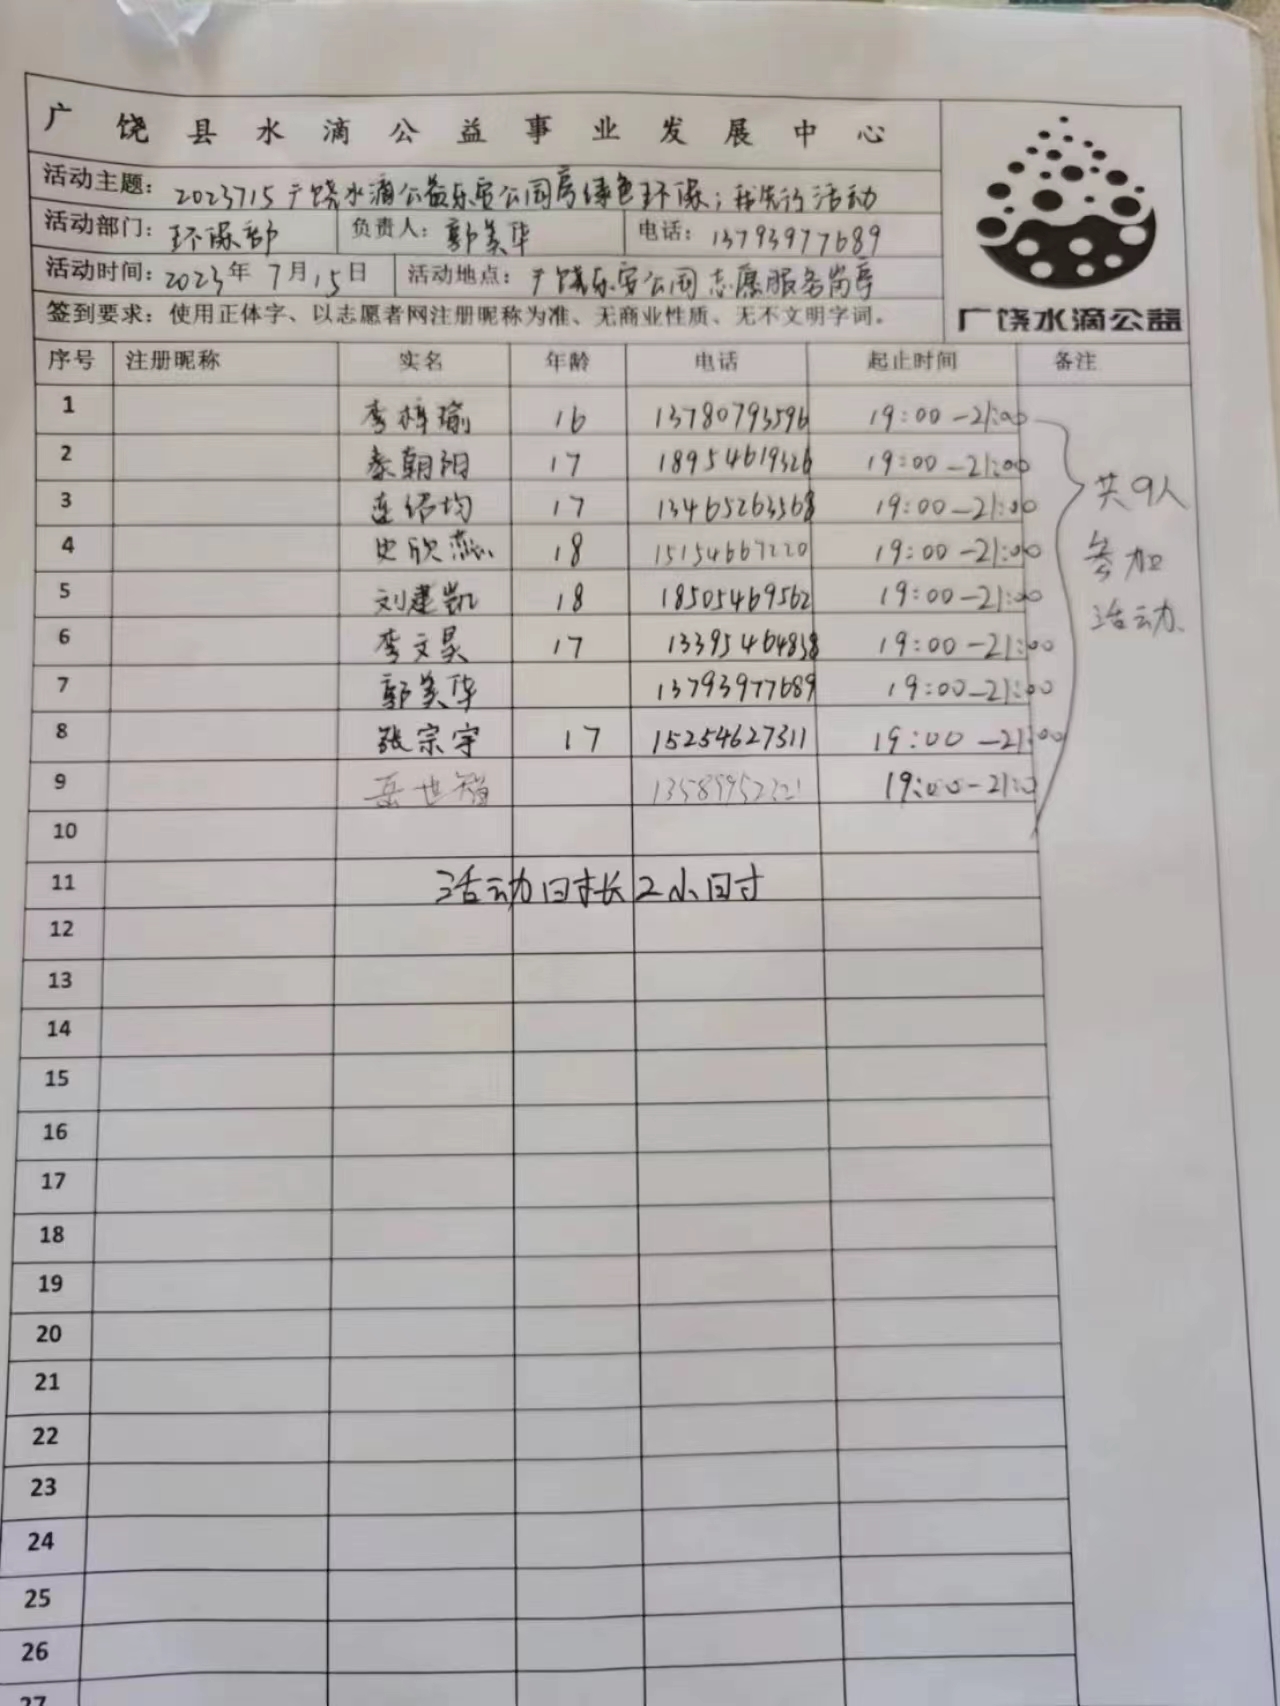 广饶县水滴公益事业发展中心
活动主题：2023715广饶水滴公益乐安公园房绿色环保；我先行活动
活动部门：环保部 负责人：郭美华 电话：13793977689
活动时间：2023年7月15日 活动地点：广饶乐安公园志愿服务岗亭
签到要求：使用正体字、以志愿者网注册昵称为准、无商业性质、无不文明字词。
广饶水滴公益
序号 注册昵称 实名 年龄 电话 起止时间 备注
1 李梓瑜 16 13780793596 19:00-21:00
2 秦朝阳 17 18954619326 19:00-21:00
3 连绍均 17 13465263568 19:00-21:00
4 史欣 18 15154667220 19:00-21:00
5 刘建凯 18 18505469562 19:00-21:00
6 李文昊 17 13395464858 19:00-21:00
7 郭美华 13793977689 19:00-21:00
8 张宗宇 17 15254627311 19:00-21:00
9 岳世 19:00-21:0
共9人
参加
活动.
10
11 活动时长2小时
12
13
14
15
16
17
18
19
20
21
22
23
24
25
26
27